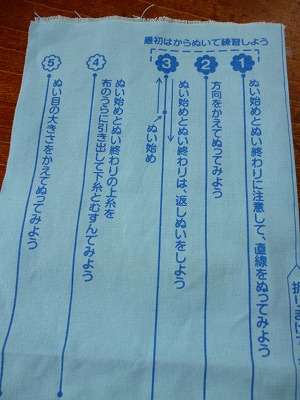 最初はからぬいで練習しよう
1
ぬい始めとぬい終わりに注意して、直線をぬってみよう
2
方向をかえてぬってみよう
3
ぬい始めとぬい終わりは、返しぬいをしよう
ぬい始め
4
ぬい始めとぬい終わりの上糸を
布のうらに引き出して下糸とむすんでみよう
5
ぬい目の大きさをかえてぬってみよう